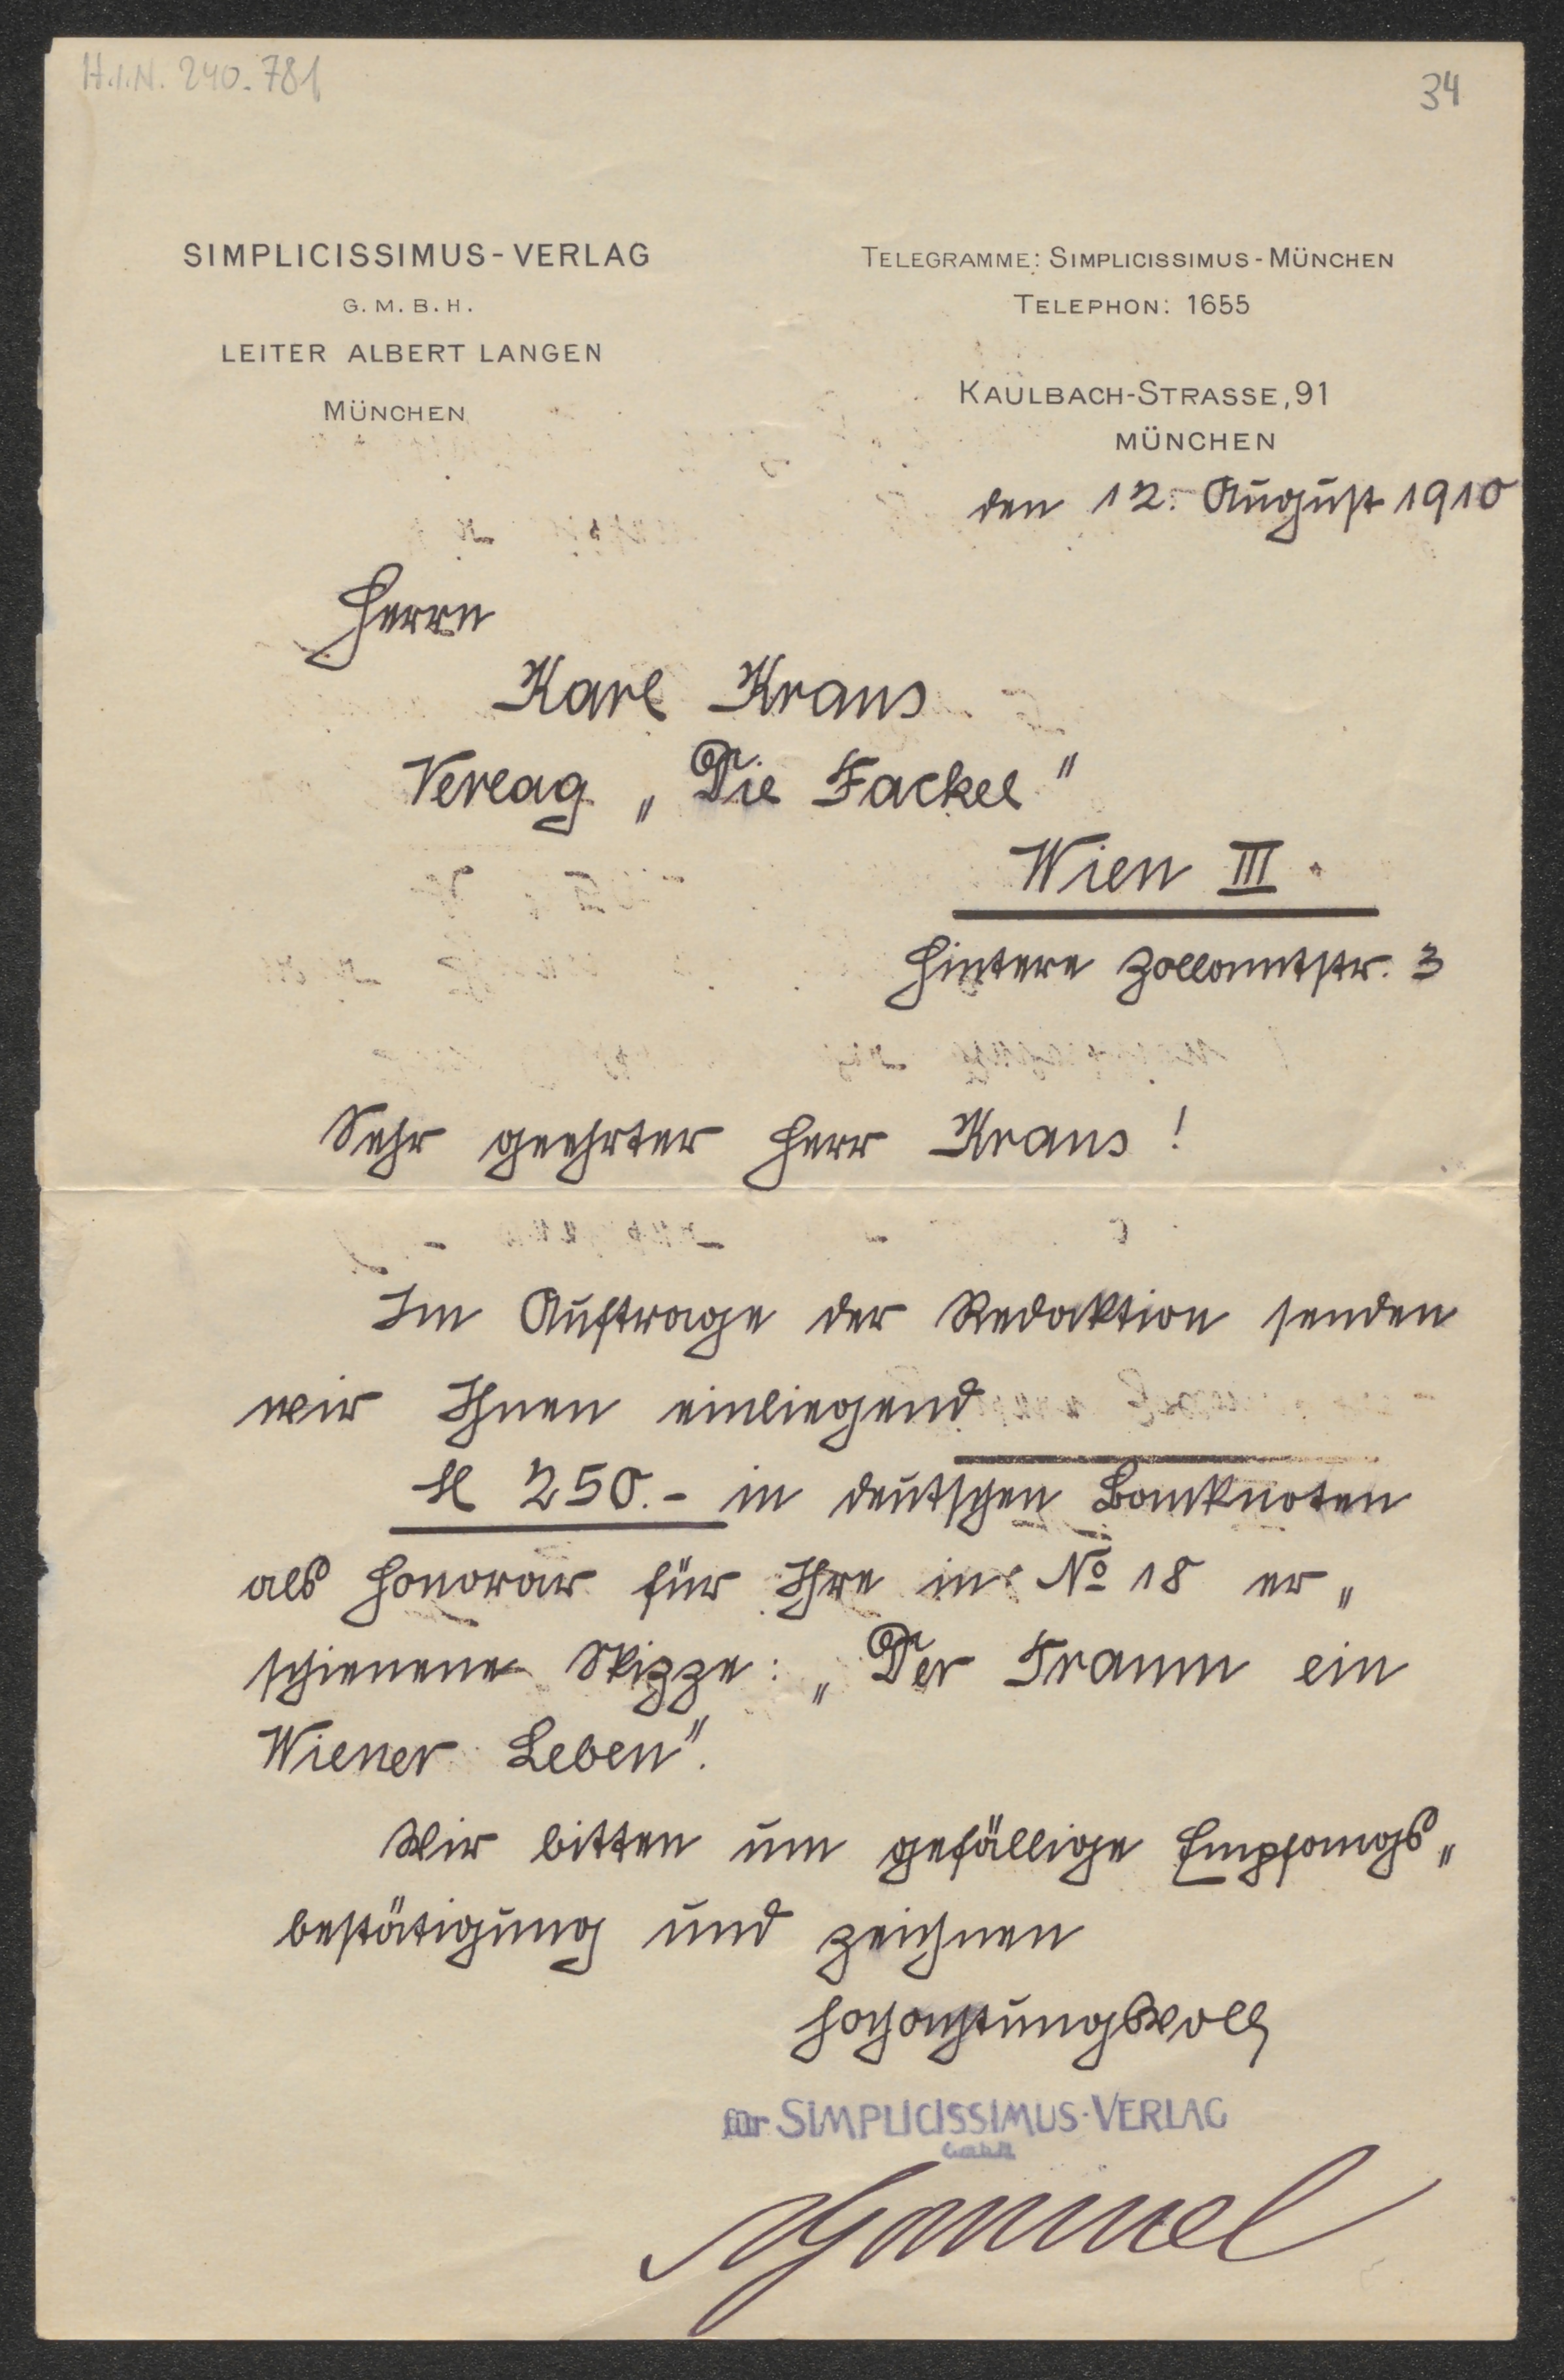 H.I.N. 240.781
34
SIMPLICISSIMUS-VERLAG
G. M. B. H.
LEITER ALBERT LANGEN
MÜNCHEN
TELEGRAMME: SIMPLICISSIMUS-MÜNCHEN
TELEPHON: 1655
KAULBACH-STRASSE, 91
MÜNCHEN
den 12. August 1910
Herrn
Karl Kraus
Verlag „Die Fackel"
Wien III.
Hintere Zollamtstr. 3
Sehr geehrter Herr Kraus!
Im Auftrage der Redaktion senden
wir Ihnen einliegend
M 250.- in deutschen Banknoten
als Honorar für Ihre in No 18 er„
schienene Skizze: „Der Traum ein
Wiener Leben".
Wir bitten um gefällige Empfangs„
bestätigung und zeichnen
hochachtungsvoll
für SIMPLICISSIMUS-VERLAG
GmbH